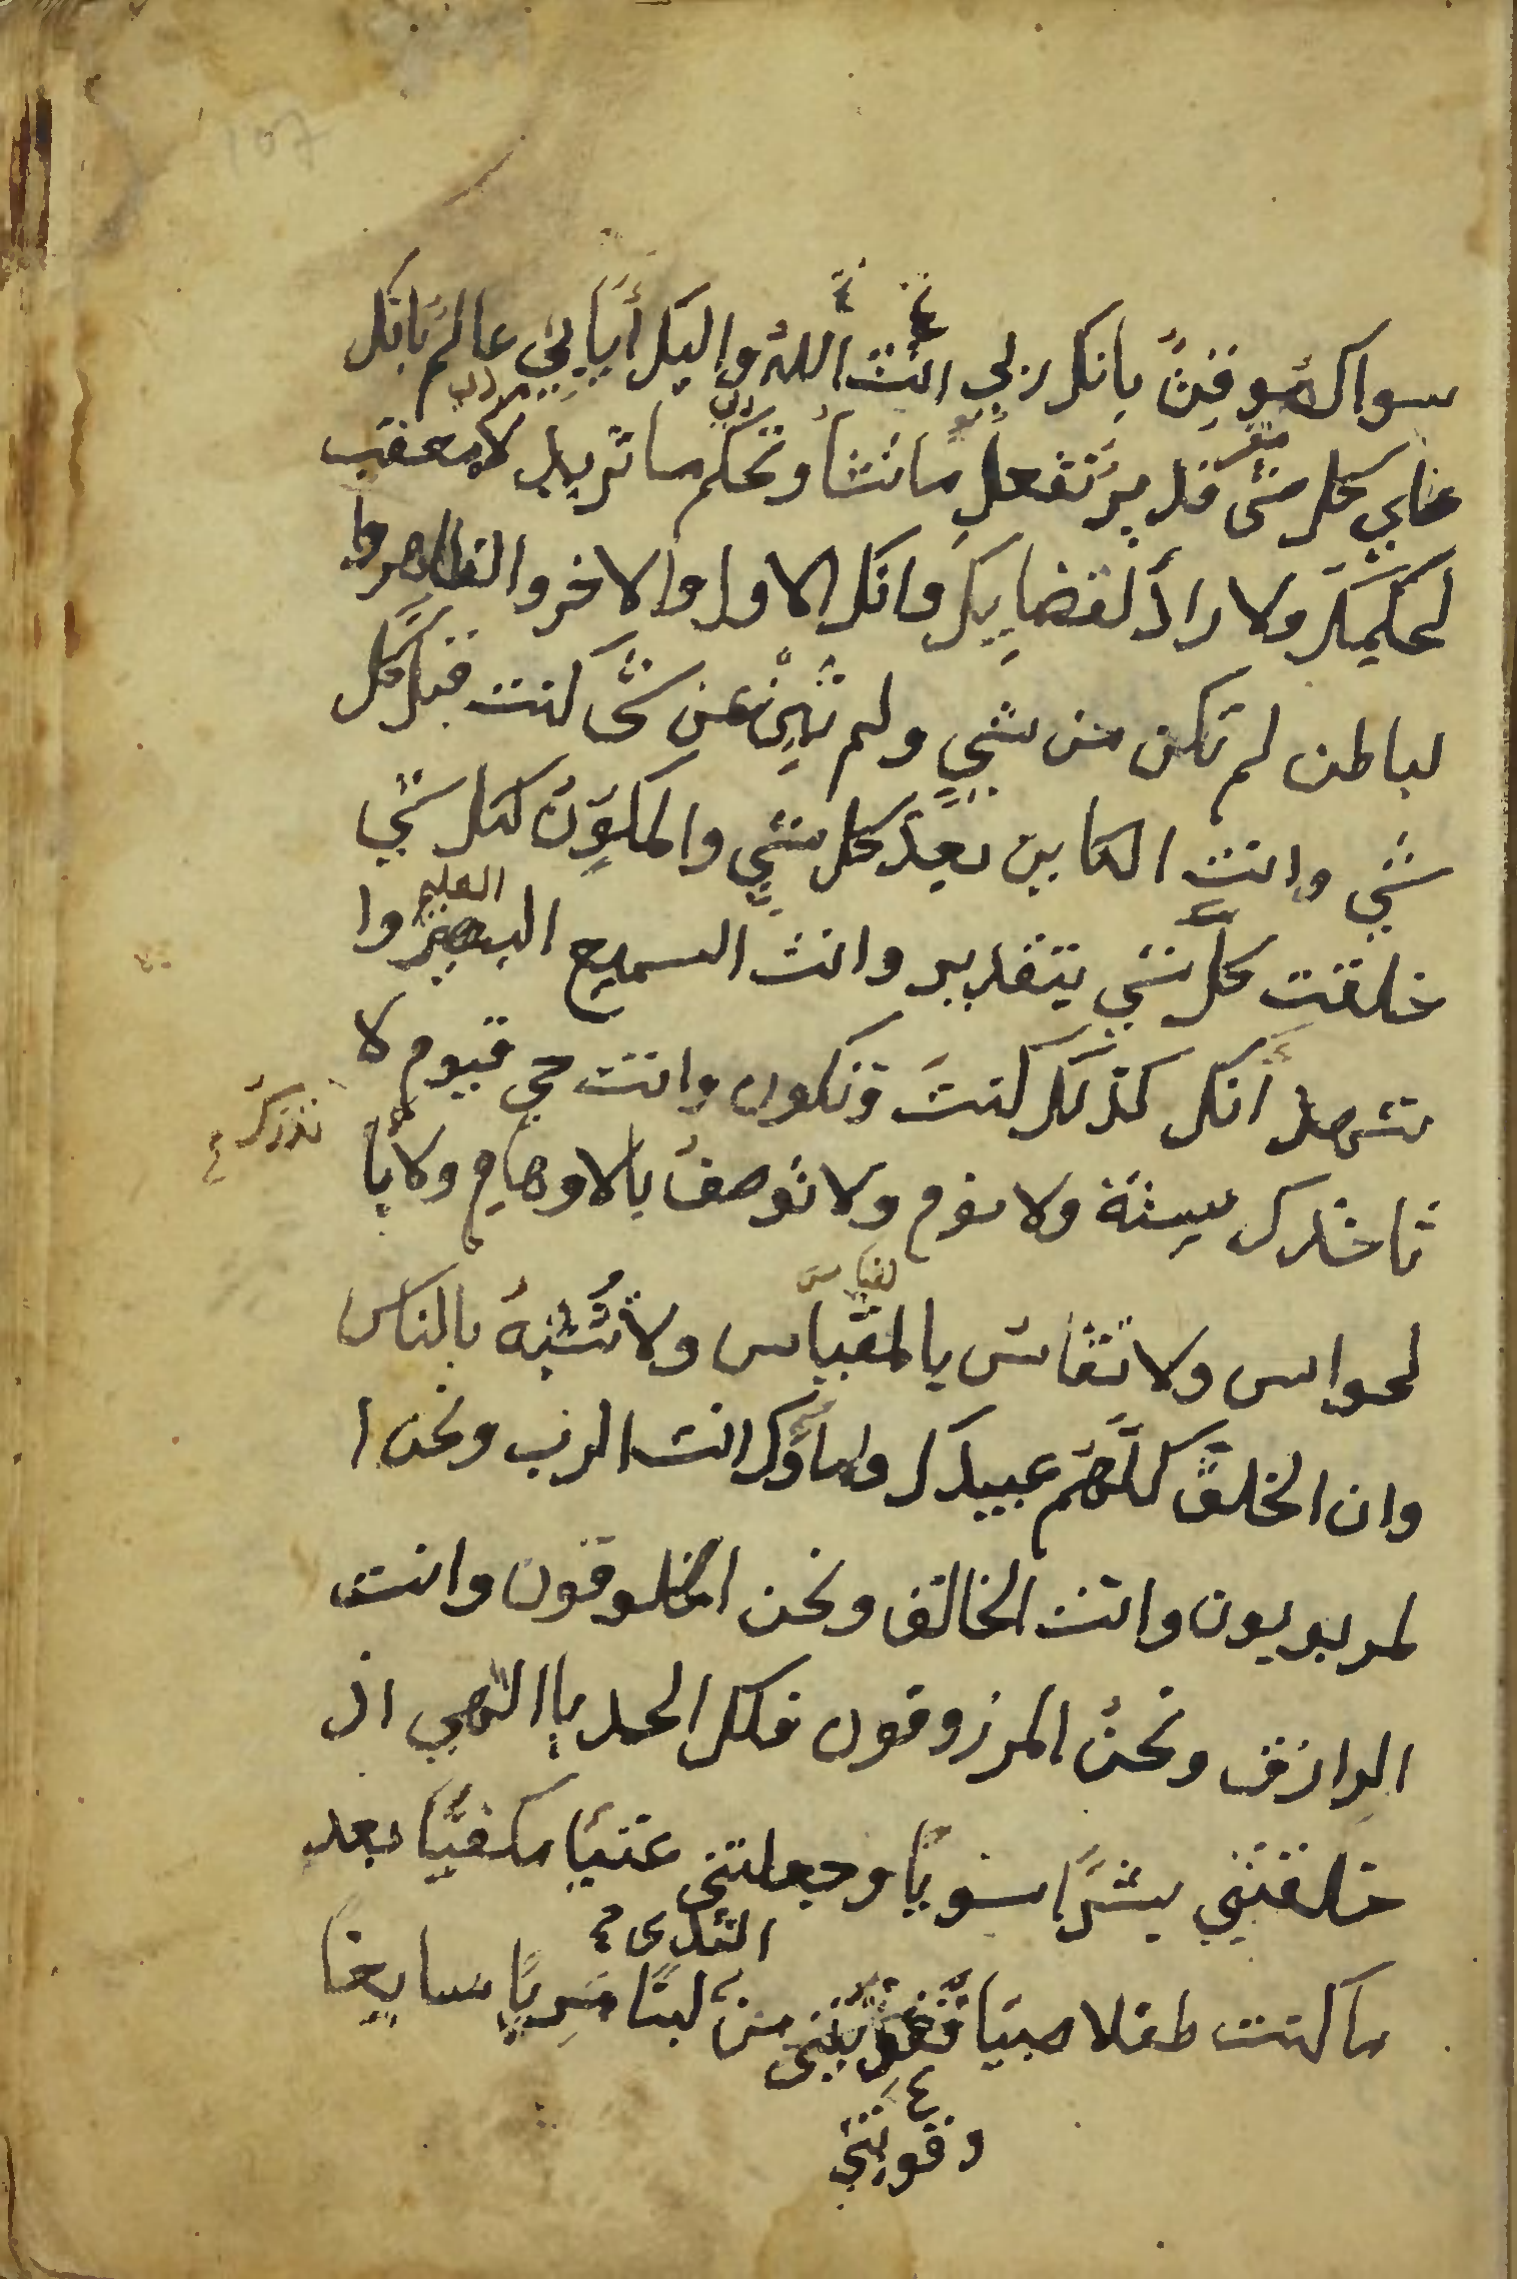 سواك موقنً بانك ربي انت الله واليك أيابي عالمً بانك
علي كل شئ قدير تفعل ما تشأ وتحكم ما تريد لا معقب
لحكمك ولا رادَ لقضايك وانك الاول والاخر والظاهر وا
لباطن لم تكن من شيٍ ولم تبِنْ عن شيً كنت قبل كل
شيٍ وانت الكاين بعد كل شيٍ والمكوِنُ لكل شيٍ
العليم
خلقت كل شيٍ بتقدير وانت السميع البصير وا
شهد أنك كذلك كنت وتكون وانت حي قيوم لا
تاخذك سِنَة ولا نوم ولا تُوصفُ بالاوهام ولا با
تدرك
لقياس
لحواس ولا تقاس بالمقياس ولا تُشْبهُ بالناس
وان الخلقَ كلَهم عبيدك واماؤك انت الرب ونحن ا
لمربوبون وانت الخالق ونحن المخلوقون وانت
الرازق ونحن المرزوقون فلك الحمد يا الهي اذ
خلقتني بشرًا سويًا وجعلتني غنيًا مكفيًا بعد
الثدى
ما كنت طفلا صبيًا من لبنًا مَرِيًا سايغا
وقويتني